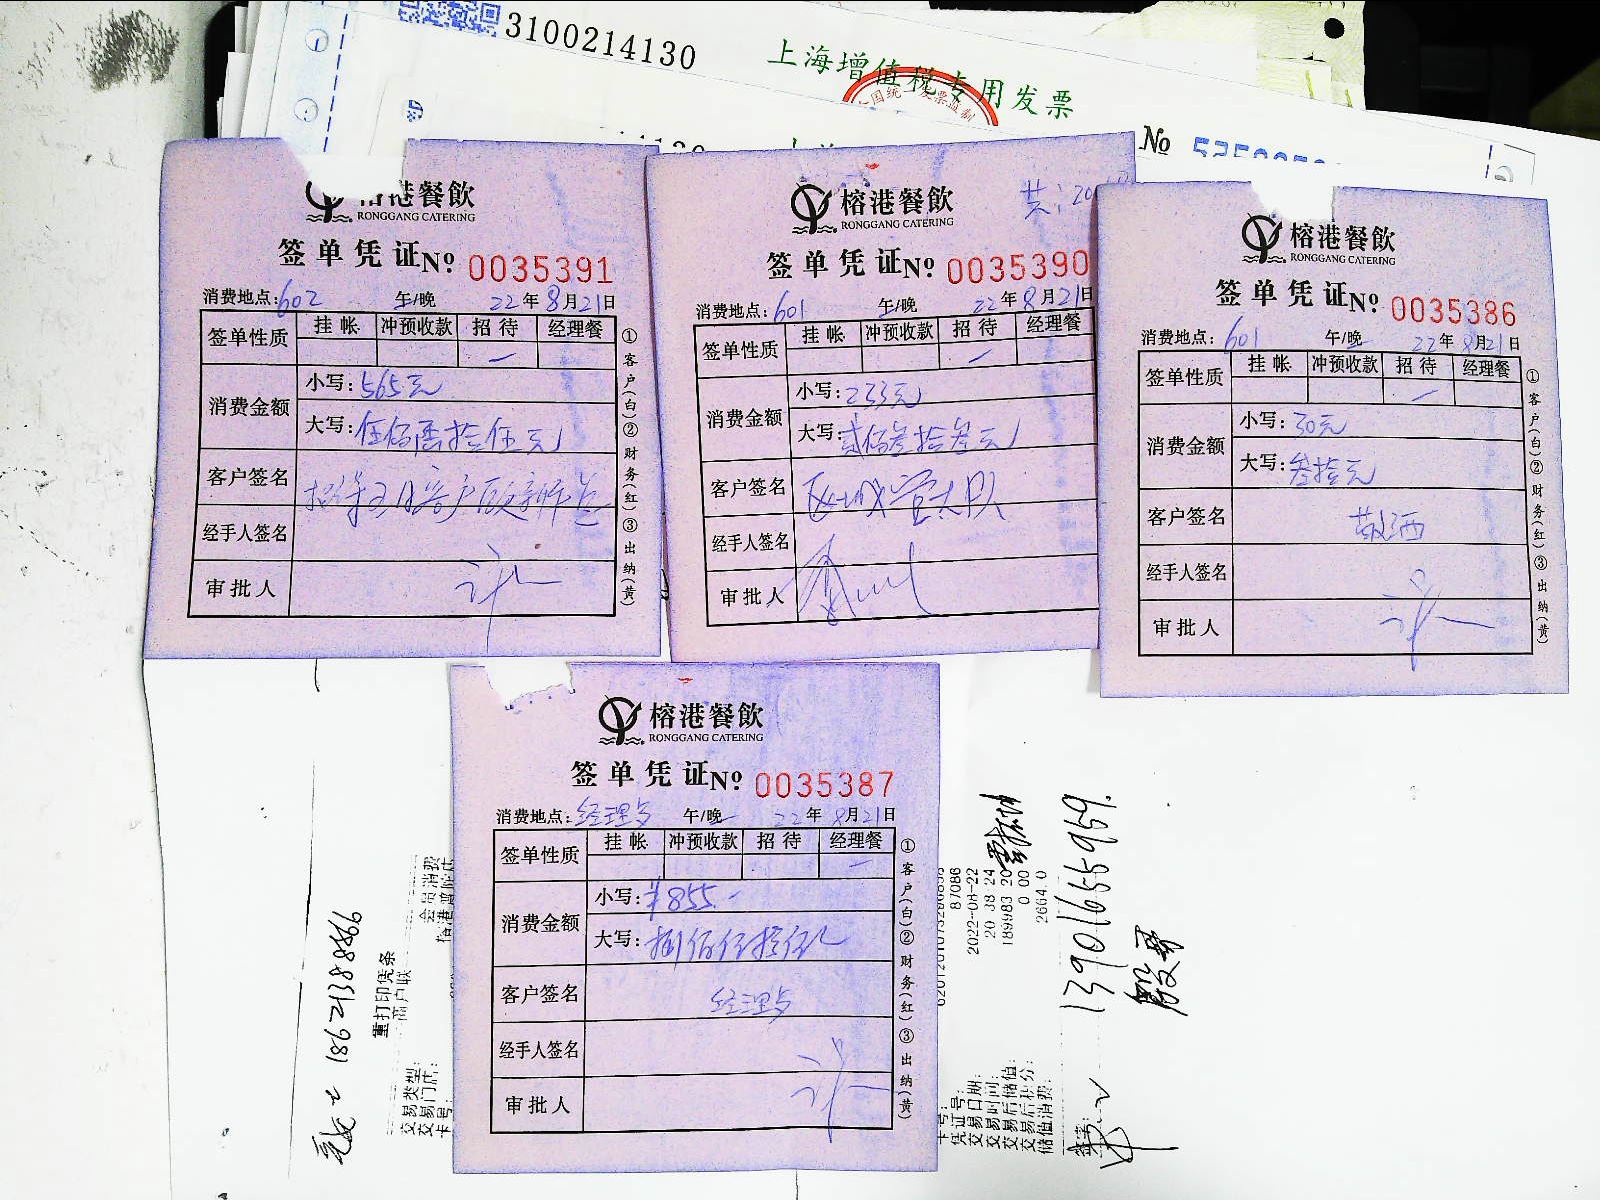 3100214130
上海增值税专用发票
国统一发票监制
No
榕港餐飲
RONGGANG CATERING
签单凭证No 0035391
消费地点:602 午/晚 22年8月21日
签单性质 挂帐 冲预收款 招待 经理餐
消费金额
小写:565元
大写:伍佰陆拾伍元
客户签名
经手人签名
审批人
①客户(白)②财务(红)③出纳(黄)
榕港餐飲
RONGGANG CATERING
共:20
签单凭证No 0035390
消费地点:601 午/晚 22年8月21日
签单性质 挂帐 冲预收款 招待 经理餐
消费金额
小写:233元
大写:贰佰叁拾叁元
客户签名 区城管大队
经手人签名
审批人
榕港餐飲
RONGGANG CATERING
签单凭证No 0035386
消费地点:601 午/晚 22年8月21日
签单性质 挂帐 冲预收款 招待 经理餐
消费金额
小写:30元
大写:叁拾元
客户签名 敬酒
经手人签名
审批人
①客户(白)②财务(红)③出纳(黄)
榕港餐飲
RONGGANG CATERING
签单凭证No 0035387
消费地点:经理 午/晚 22年8月21日
签单性质 挂帐 冲预收款 招待 经理餐
消费金额
小写:¥855-
大写:捌佰伍拾伍
客户签名 经理
经手人签名
审批人
①客户(白)②财务(红)③出纳(黄)
18621388869
重打印凭条
商户联
交易类型:
交易门店:
卡号:
会员消费
卡号:
凭证号: 87086
交易日期: 2022-08-22
交易时间: 20 38 24
交易后储值: 189983 20
交易后积分: 0 00
储值消费: 2664 0
签字:
13901655959